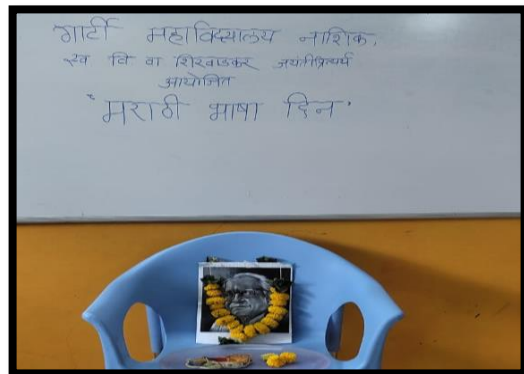 गार्टी महाविद्यालय नाशिक.
स्व वि वा शिरवाडकर जयंतीप्रित्यर्थ
आयोजित
'मराठी भाषा दिन'